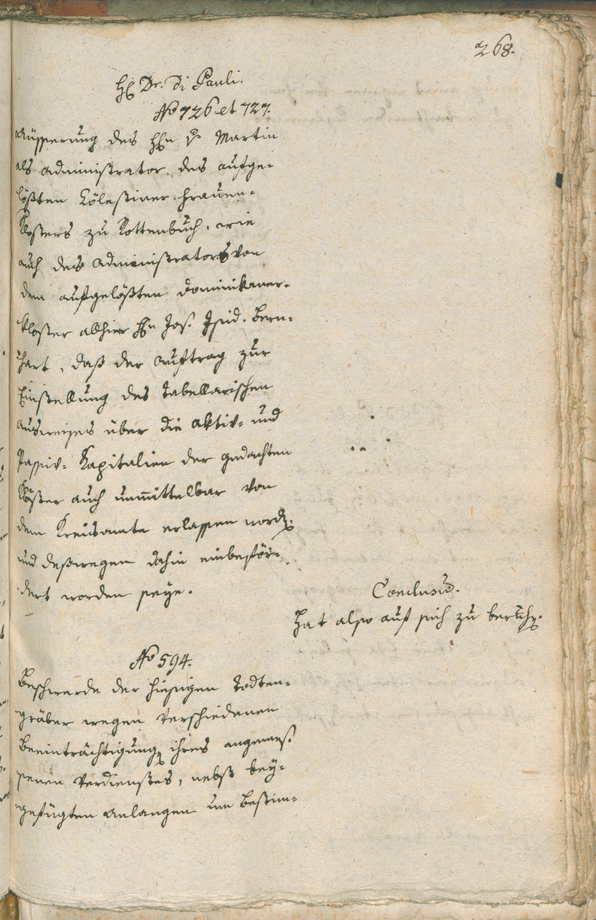 268.
H. Dr. Di Pauli.
No 726 et 727.
Äusserung des H. v. Martin
als Administrator des aufge-
lößten Cölestiner-Frauen-
Klosters zu Rottenbuch, wie
auch des Administrators von
dem aufgelößten Dominikaner-
kloster alhier Hn Jos. Isid. Bern-
hart, daß der Auftrag zur
Einstellung des tabellarischen
Ausweises über die aktiv- und
Passiv-Kapitalien der gedachten
Klöster auch unmittelbar von
dem Kreisamte erlassen word.
und deßwegen dahin einbeför-
dert worden seye.
Conclusum.
Hat also auf sich zu beruh.
No 594.
Beschwerde der hiesigen Todten-
gräber wegen verschiedenen
Beeinträchtigung ihres angemes-
senen Verdienstes, nebst bey-
gefügten Anlangen um Bestim-